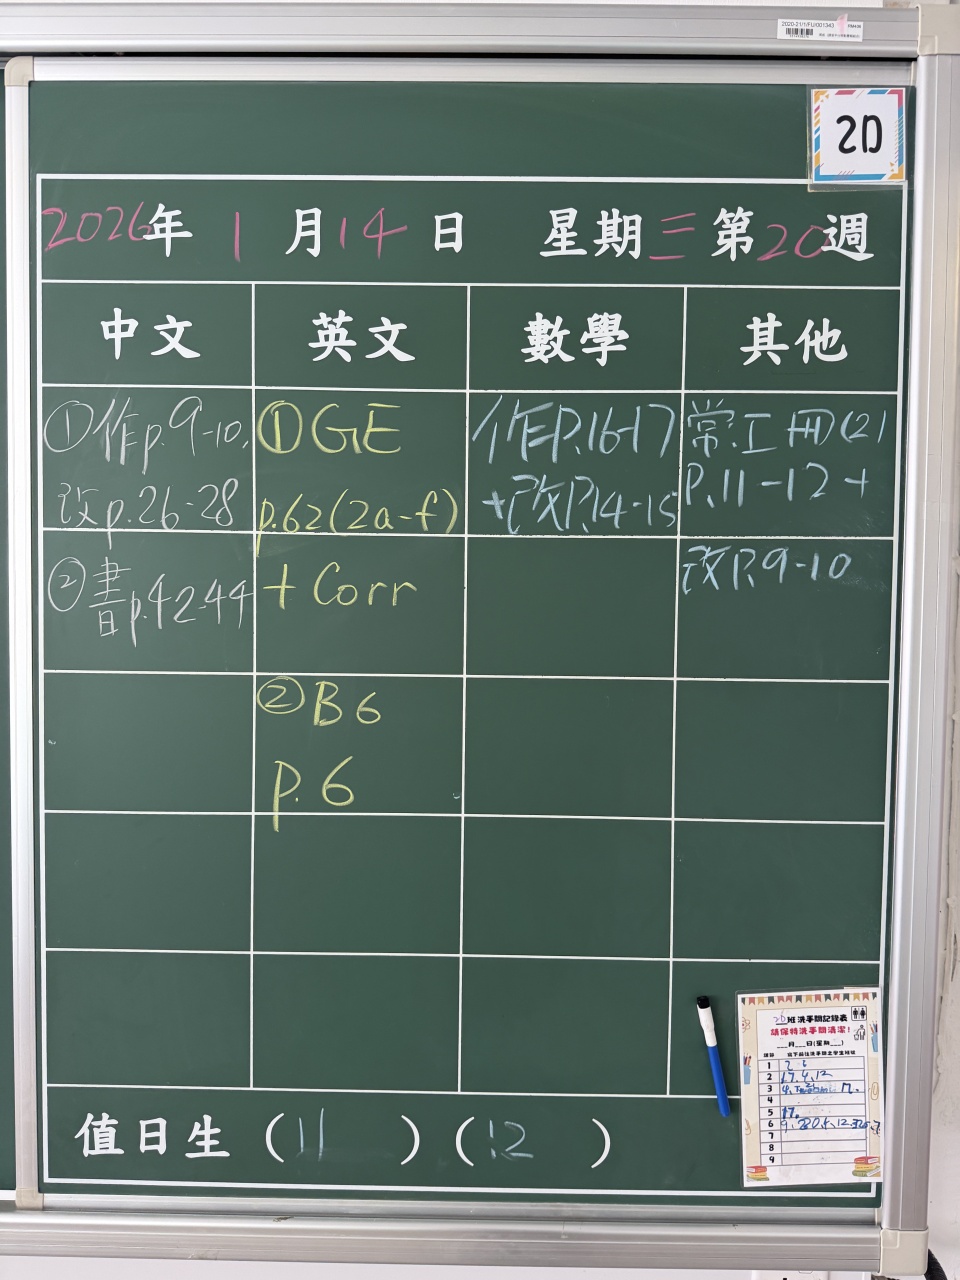 2020-21/1/FU/001343
2D
2026年1月14日 星期三 第20週
中文
英文
數學
其他
①作p.9-10,
改p.26-28
②書p.42-44
①GE
p.62(2a-f)
+ Corr
②B6
p.6
作P.16-17
+改P.14-15
常工冊(2)
P.11-12+
改P.9-10
值日生 (11) (12)
班洗手間記錄表
請保持洗手間清潔!
___月___日(星期___)
1
2 17.4.12
3
4
5 17.
6
7
8
9